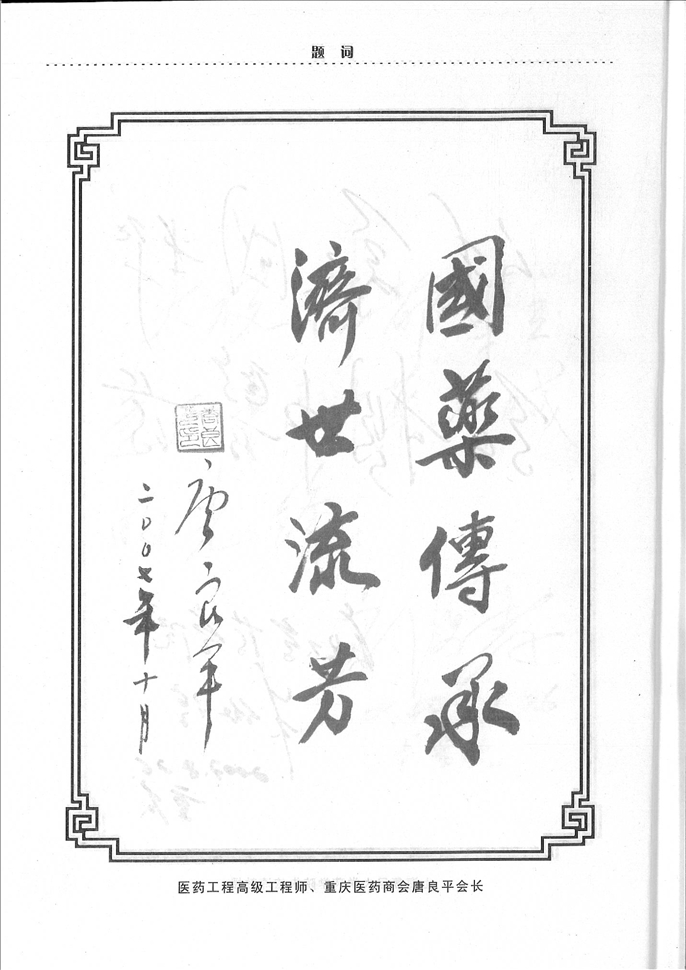 题 词
國藥傳承
濟世流芳
唐良平
二〇〇七年十月
医药工程高级工程师、重庆医药商会唐良平会长